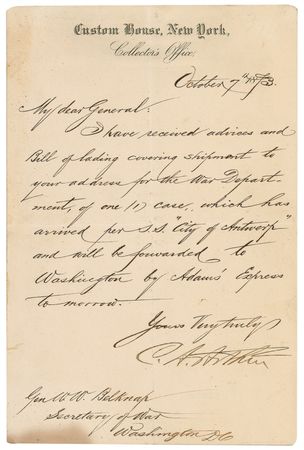 Custom House, New York,
Collector's Office,
October 7th 1873.
My dear General.
I have received advices and
Bill of lading covering shipment to
your address for the War Depart-
ment, of one (1) case, which has
arrived per S.S. "City of Antwerp"
and will be forwarded to
Washington by Adams' Express
to morrow.
Yours Very truly
C. A. Arthur
Gen W. W. Belknap
Secretary of War
Washington DC